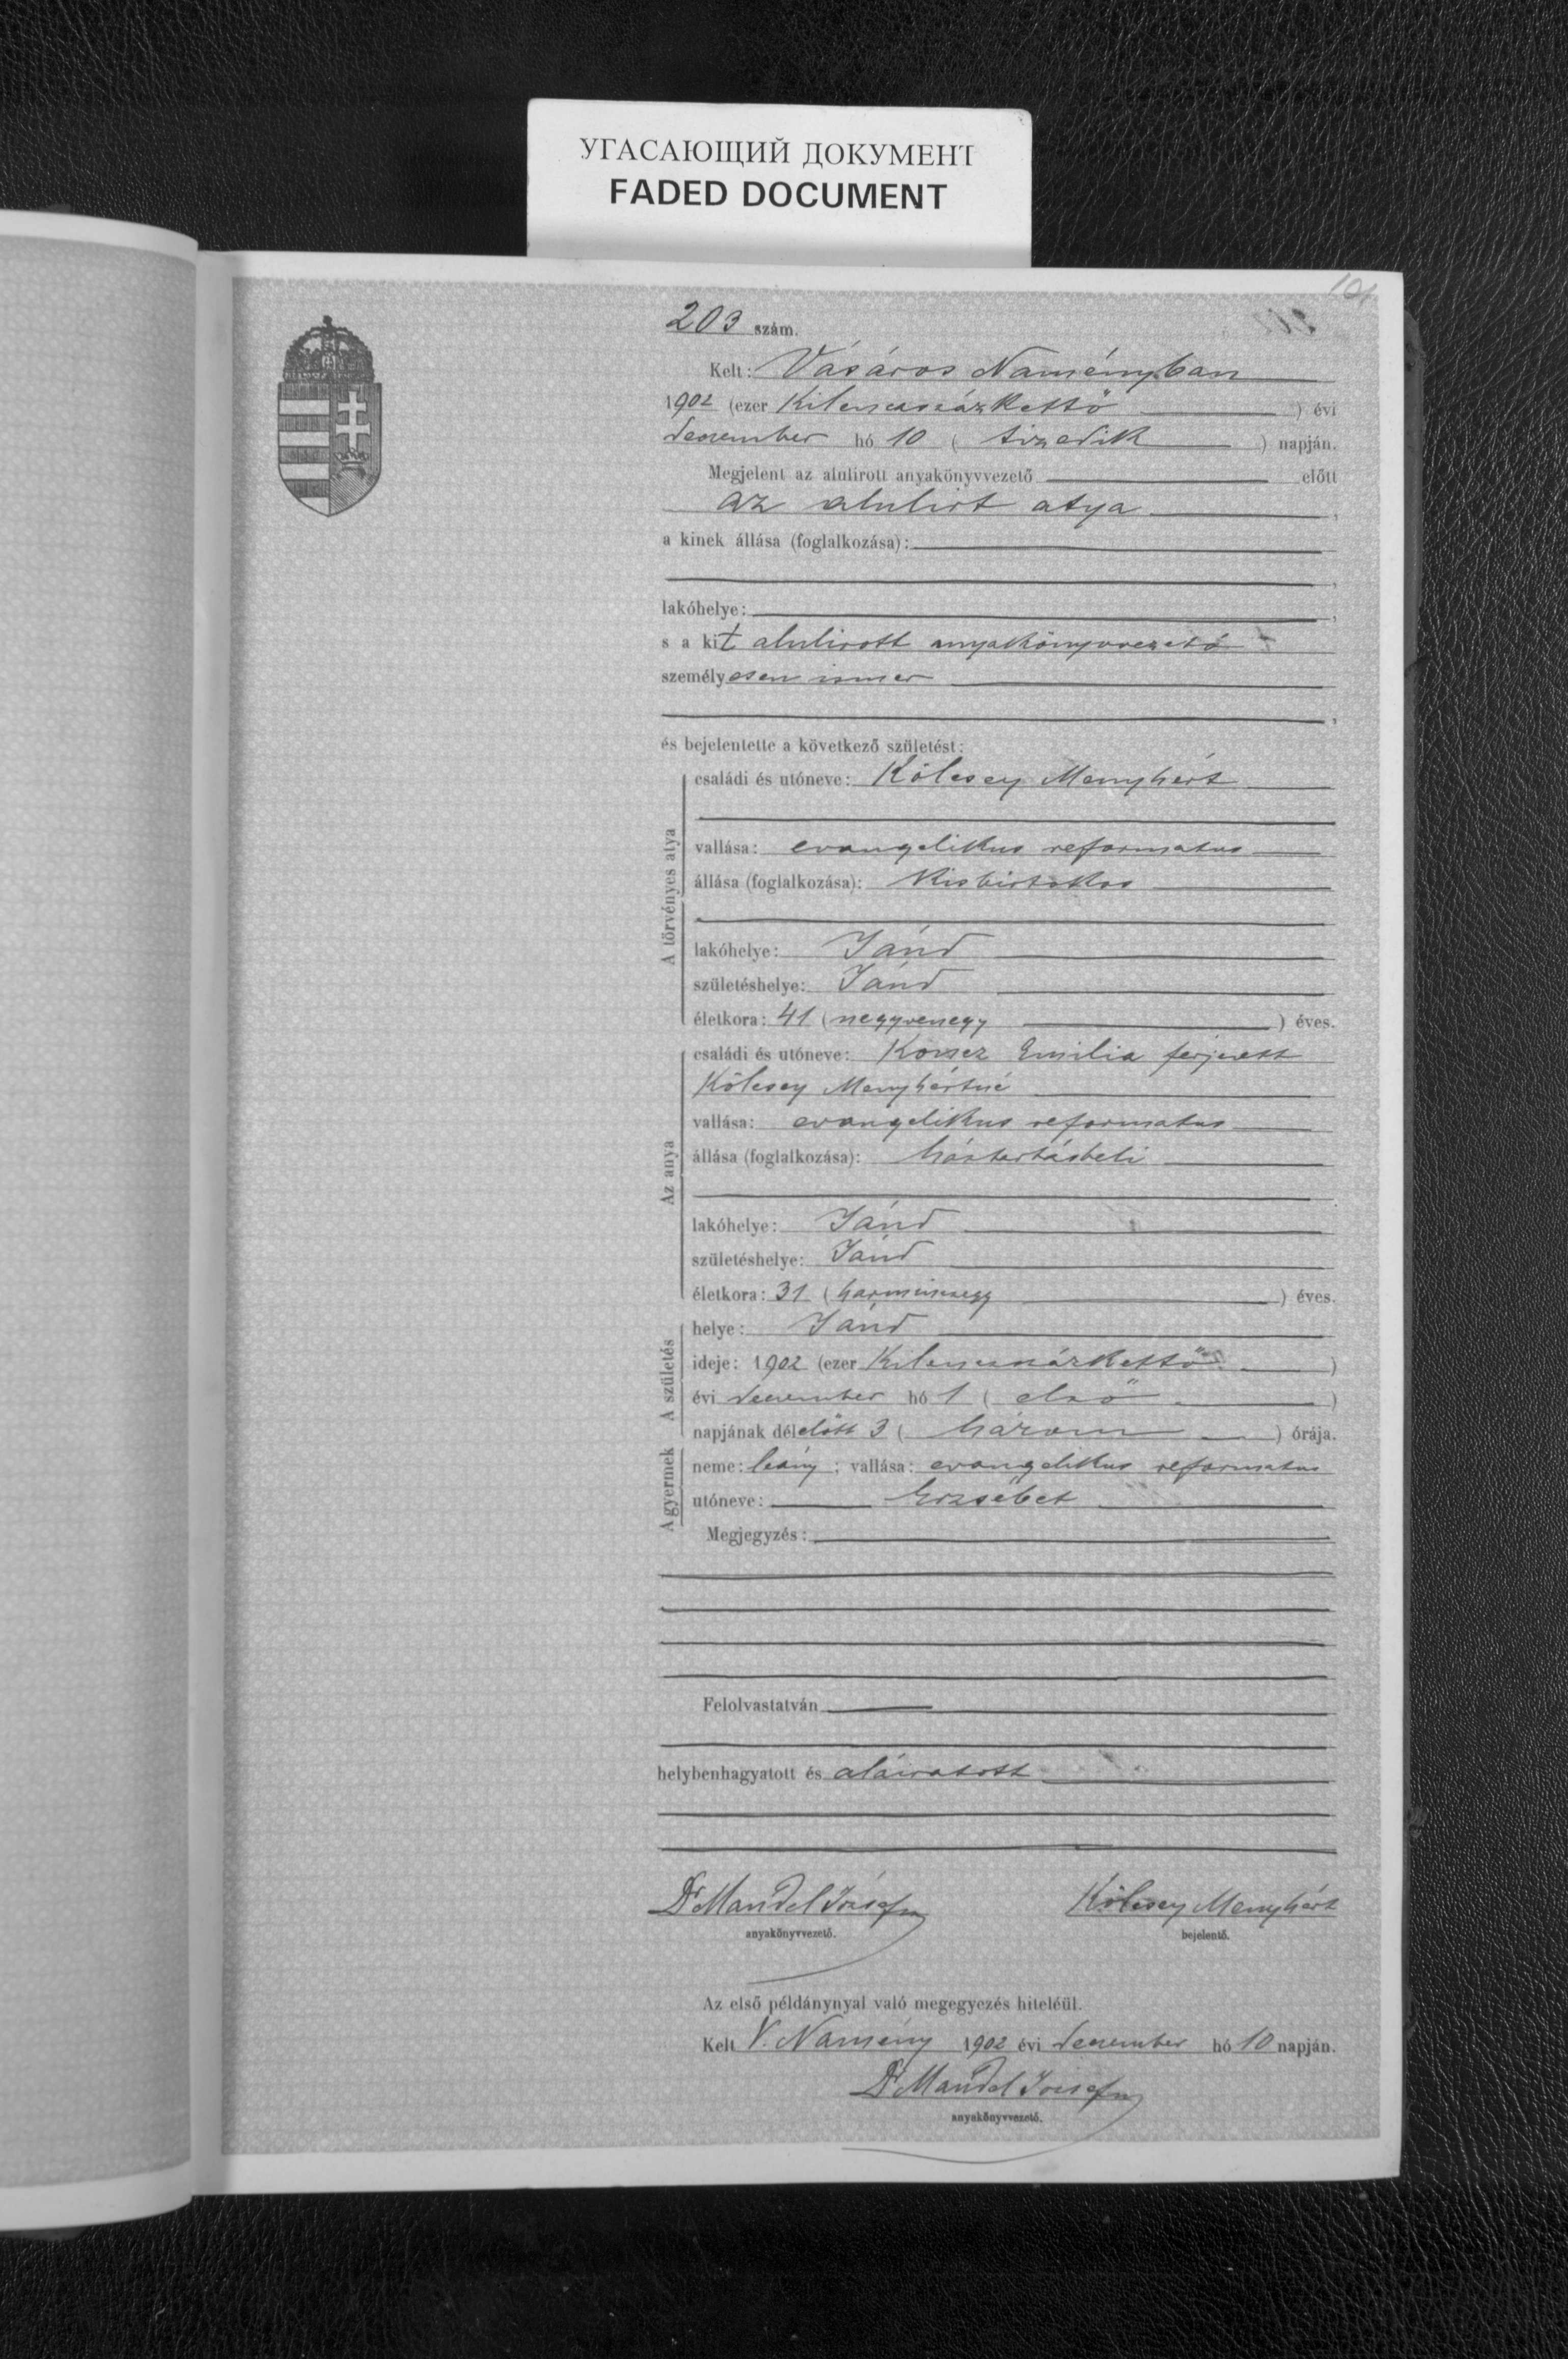 УГАСАЮЩИЙ ДОКУМЕНТ
FADED DOCUMENT
101
203 szám.
Kelt: Vásáros Naményban
1902 (ezer kilenczszázkettő) évi
deczember hó 10 (tizedik) napján.
Megjelent az alulirott anyakönyvvezető előtt
az alulirt atya,
a kinek állása (foglalkozása):
lakóhelye:
s a kit alulirott anyakönyvvezető
személyesen ismer
és bejelentette a következő születést:
A törvényes atya
családi és utóneve: Kölcsey Menyhért
vallása: evangelikus reformatus
állása (foglalkozása): kisbirtokos
lakóhelye: Jánd
születéshelye: Jánd
életkora: 41 (negyvenegy) éves.
Az anya
családi és utóneve: Emilia férjezett
Kölcsey Menyhértné
vallása: evangelikus reformatus
állása (foglalkozása): háztartásbeli
lakóhelye: Jánd
születéshelye: Jánd
életkora: 31 (harminczegy) éves.
A születés
helye: Jánd
ideje: 1902 (ezer kilenczszázkettő)
évi deczember hó 1 (első)
napjának délelőtt 3 (három) órája.
A gyermek
neme: leány; vallása: evangelikus reformatus
utóneve: Erzsébet
Megjegyzés:
Felolvastatván
helybenhagyatott és aláiratott
Dr Mandel József Kölcsey Menyhért
anyakönyvvezető. bejelentő.
Az első példánynyal való megegyezés hiteléül.
Kelt V. Namény 1902 évi deczember hó 10 napján.
Dr Mandel József
anyakönyvvezető.